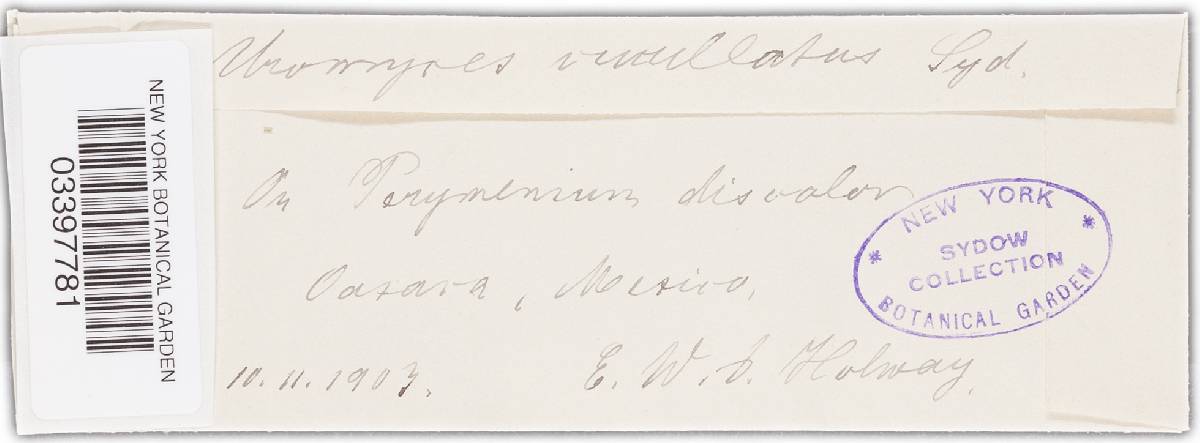 Uromyces cucullatus Syd.
On Perymenium discolor
Oaxaca, Mexico,
10.11.1903.
E. W. D. Holway.
NEW YORK
SYDOW
COLLECTION
BOTANICAL GARDEN
NEW YORK BOTANICAL GARDEN
03397781